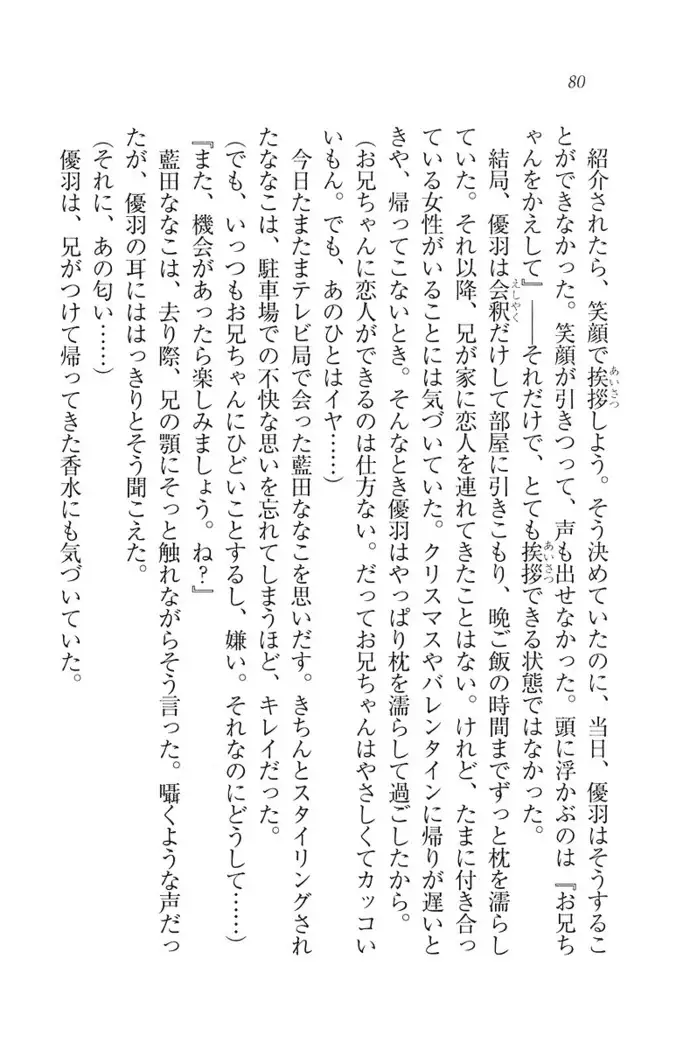 80
紹介されたら、笑顔で挨拶しよう。そう決めていたのに、当日、優羽はそうするこ
とができなかった。笑顔が引きつって、声も出せなかった。頭に浮かぶのは『お兄ち
ゃんをかえして』――それだけで、とても挨拶できる状態ではなかった。
結局、優羽は会釈だけして部屋に引きこもり、晩ご飯の時間までずっと枕を濡らし
ていた。それ以降、兄が家に恋人を連れてきたことはない。けれど、たまに付き合っ
ている女性がいることには気づいていた。クリスマスやバレンタインに帰りが遅いと
きや、帰ってこないとき。そんなとき優羽はやっぱり枕を濡らして過ごしたから。
（お兄ちゃんに恋人ができるのは仕方ない。だってお兄ちゃんはやさしくてカッコい
いもん。でも、あのひとはイヤ……）
今日たまたまテレビ局で会った藍田ななこを思いだす。きちんとスタイリングされ
たななこは、駐車場での不快な思いを忘れてしまうほど、キレイだった。
（でも、いっつもお兄ちゃんにひどいことするし、嫌い。それなのにどうして……）
『また、機会があったら楽しみましょう。ね？』
藍田ななこは、去り際、兄の顎にそっと触れながらそう言った。囁くような声だっ
たが、優羽の耳にははっきりとそう聞こえた。
（それに、あの匂い……）
優羽は、兄がつけて帰ってきた香水にも気づいていた。